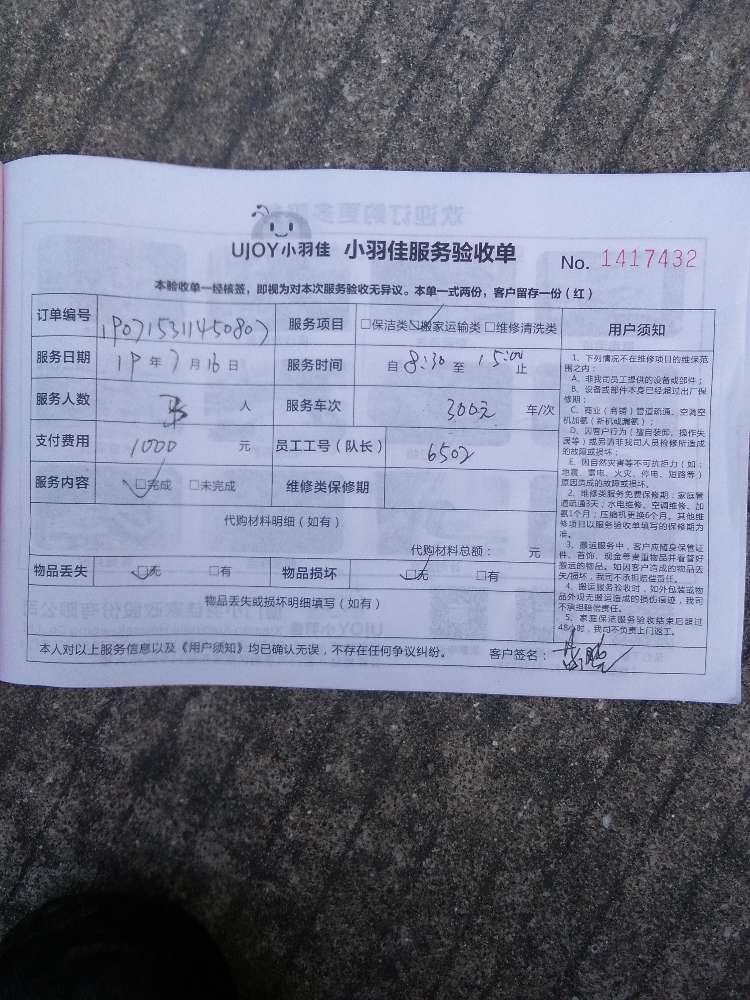 UJOY小羽佳 小羽佳服务验收单 No. 1417432
本验收单一经核签，即视为对本次服务验收无异议。本单一式两份，客户留存一份（红）
订单编号 190715311450807 服务项目 □保洁类 ☑搬家运输类 □维修清洗类
服务日期 19 年 7 月 16 日 服务时间 自 8:30 至 15:00 止
服务人数 人 服务车次 300元 车/次
支付费用 1000 元 员工工号（队长） 6502
服务内容 ☑完成 □未完成 维修类保修期
代购材料明细（如有）
代购材料总额： 元
物品丢失 ☑无 □有 物品损坏 ☑无 □有
物品丢失或损坏明细填写（如有）
本人对以上服务信息以及《用户须知》均已确认无误，不存在任何争议纠纷。 客户签名：
用户须知
1、下列情况不在维修项目的维保范
围之内：
A、非我司员工提供的设备或部件；
B、设备或部件本身已经超过出厂保
修期；
C、商业（商铺）管道疏通、空调空
机加氨（新机或漏氨）；
D、因客户行为（擅自装卸、操作失
误等）或另请非我司人员检修所造成
的故障或损坏；
E、因自然灾害等不可抗拒力（如：
地震、雷电、火灾、停电、短路等）
原因造成的故障或损坏。
2、维修类服务免费保修期：家庭管
道疏通3天，水电维修、空调维修、加
氨1个月；压缩机更换6个月。其他维
修项目以服务验收单填写的保修期为
准。
3、搬运服务中，客户应随身保管证
件、首饰、现金等贵重物品并看管好
搬运的物品。如因客户造成的物品丢
失/损坏，我司不承担赔偿责任。
4、搬运服务验收时，如外包装或物
品外观无搬运造成的损伤痕迹，我司
不承担赔偿责任。
5、家庭保洁服务验收结束后超过
48小时，我司不负责上门返工。